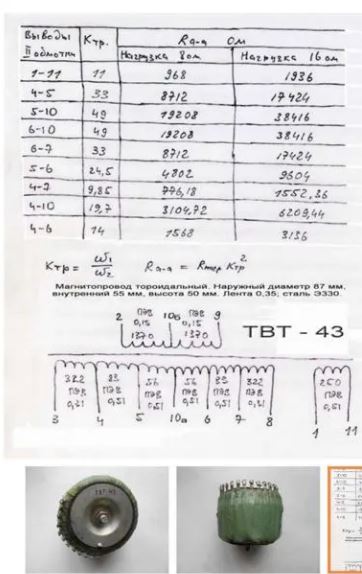 Выводы II обмотки Ктр. Ra-a Ом
Нагрузка 8ом Нагрузка 16 ом
1-11 11 968 1936
4-5 33 8712 17424
5-10 49 19208 38416
6-10 49 19208 38416
6-7 33 8712 17424
5-6 24,5 4802 9604
4-9 9,85 776,18 1552,36
4-10 19,7 3104,72 6209,44
4-6 14 1568 3136
Ктр = ω1/ω2 Ra-a = Rнагр Ктр²
Магнитопровод тороидальный. Наружный диаметр 87 мм,
внутренний 55 мм, высота 50 мм. Лента 0,35; сталь Э330.
2 ПЭВ 0,15 1370 10б ПЭВ 0,15 1370 9
ТВТ - 43
322 83 56 56 83 322 250
ПЭВ ПЭВ ПЭВ ПЭВ ПЭВ ПЭВ ПЭВ
0,21 0,51 0,51 0,51 0,51 0,21 0,51
3 4 5 10а 6 7 8 1 11